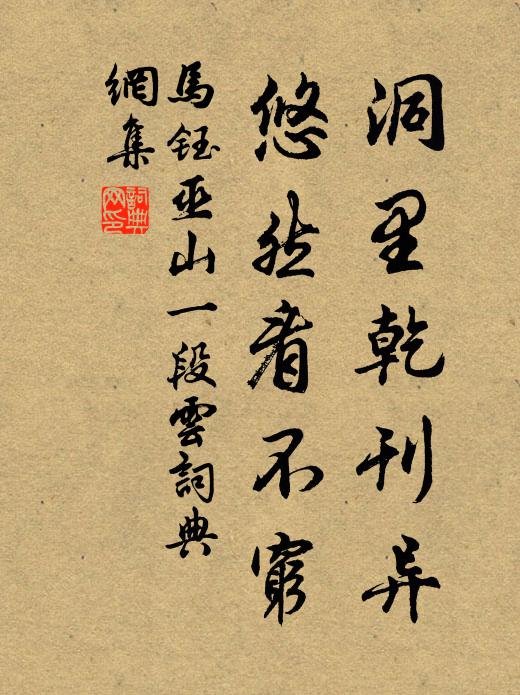 洞里乾刊异
悠然看不窮
馬鈺巫山一段雲詞典
網集
詞典網印